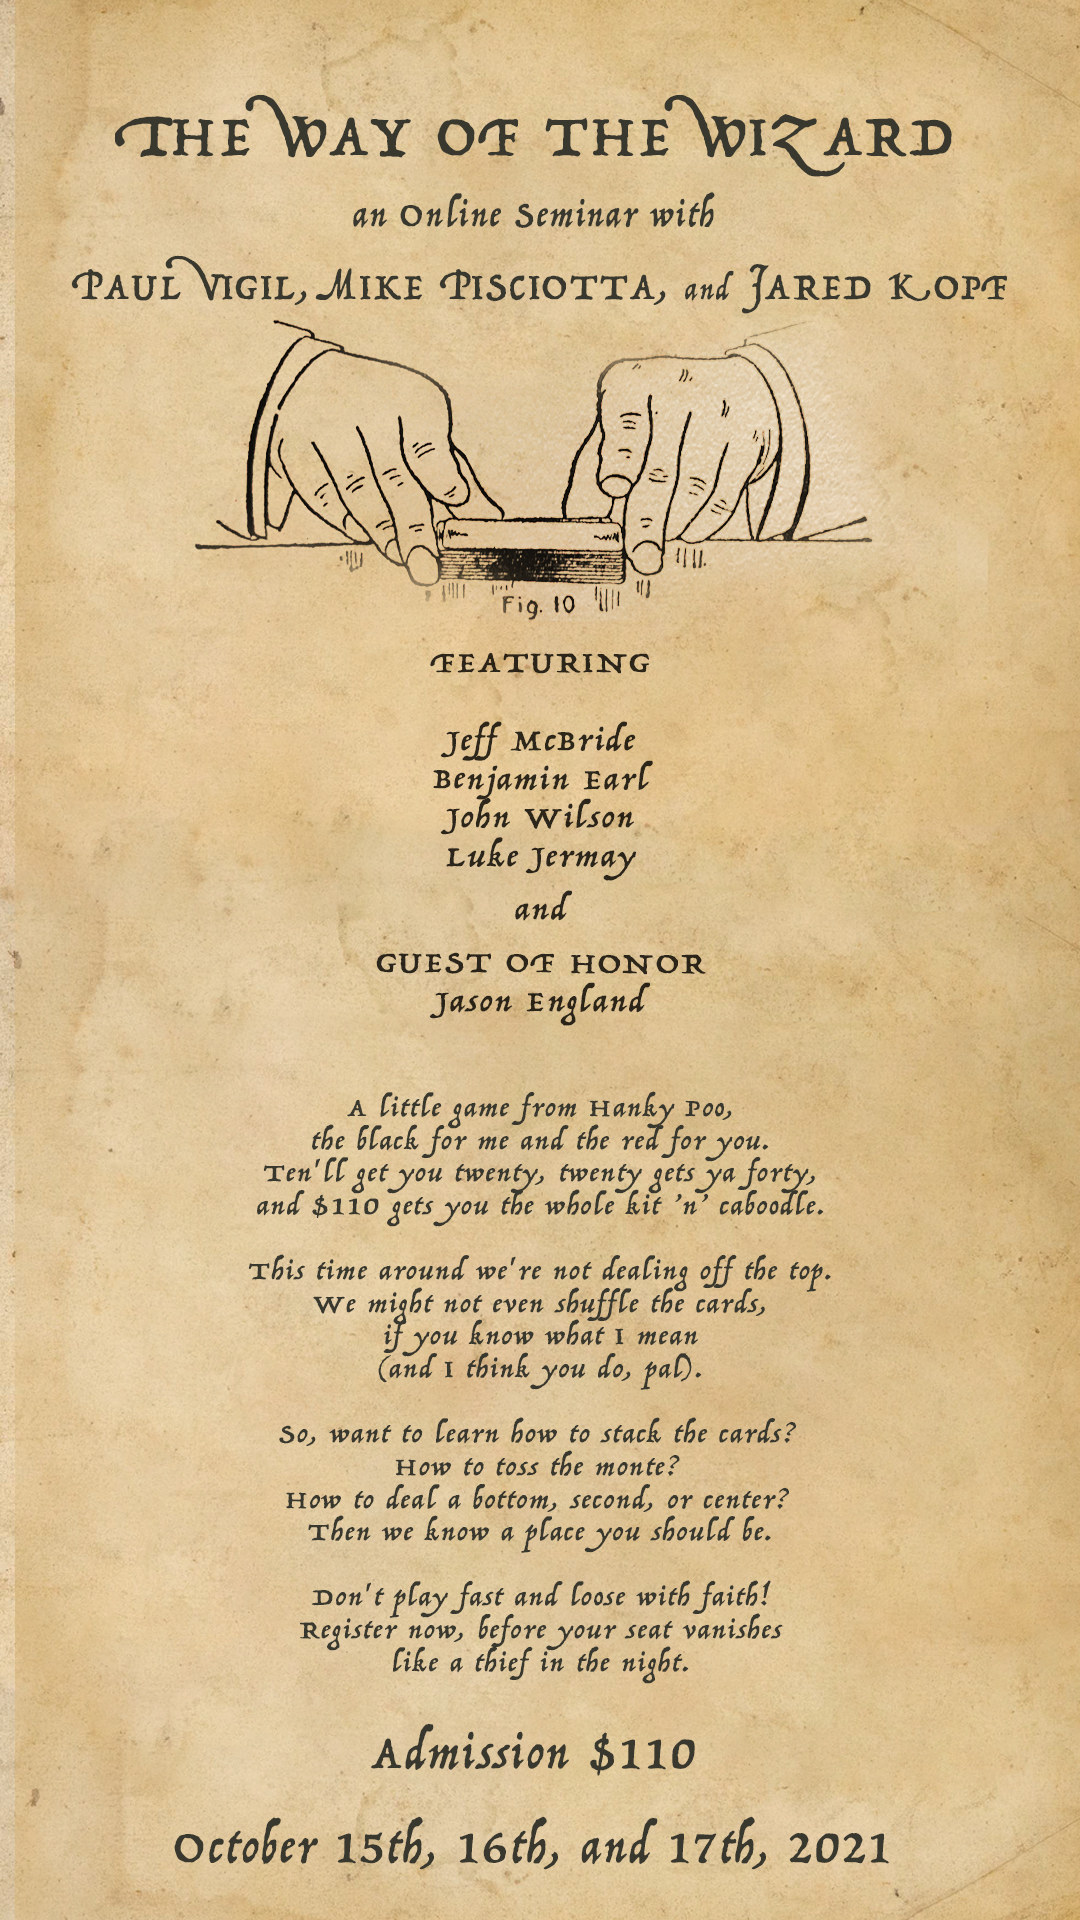 THE WAY OF THE WIZARD
an Online Seminar with
PAUL VIGIL, MIKE PISCIOTTA, and JARED KOPF
Fig. 10
FEATURING
Jeff McBride
Benjamin Earl
John Wilson
Luke Jermay
and
GUEST OF HONOR
Jason England
A little game from Hanky Poo,
the black for me and the red for you.
Ten'll get you twenty, twenty gets ya forty,
and $110 gets you the whole kit 'n' caboodle.
This time around we're not dealing off the top.
We might not even shuffle the cards,
if you know what I mean
(and I think you do, pal).
So, want to learn how to stack the cards?
How to toss the monte?
How to deal a bottom, second, or center?
Then we know a place you should be.
Don't play fast and loose with faith!
Register now, before your seat vanishes
like a thief in the night.
Admission $110
October 15th, 16th, and 17th, 2021